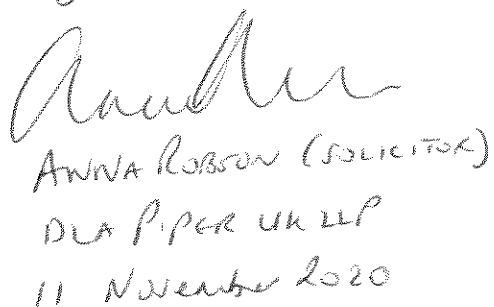 ANNA ROBSON (SOLICITOR)
DLA PIPER UK LLP
11 November 2020